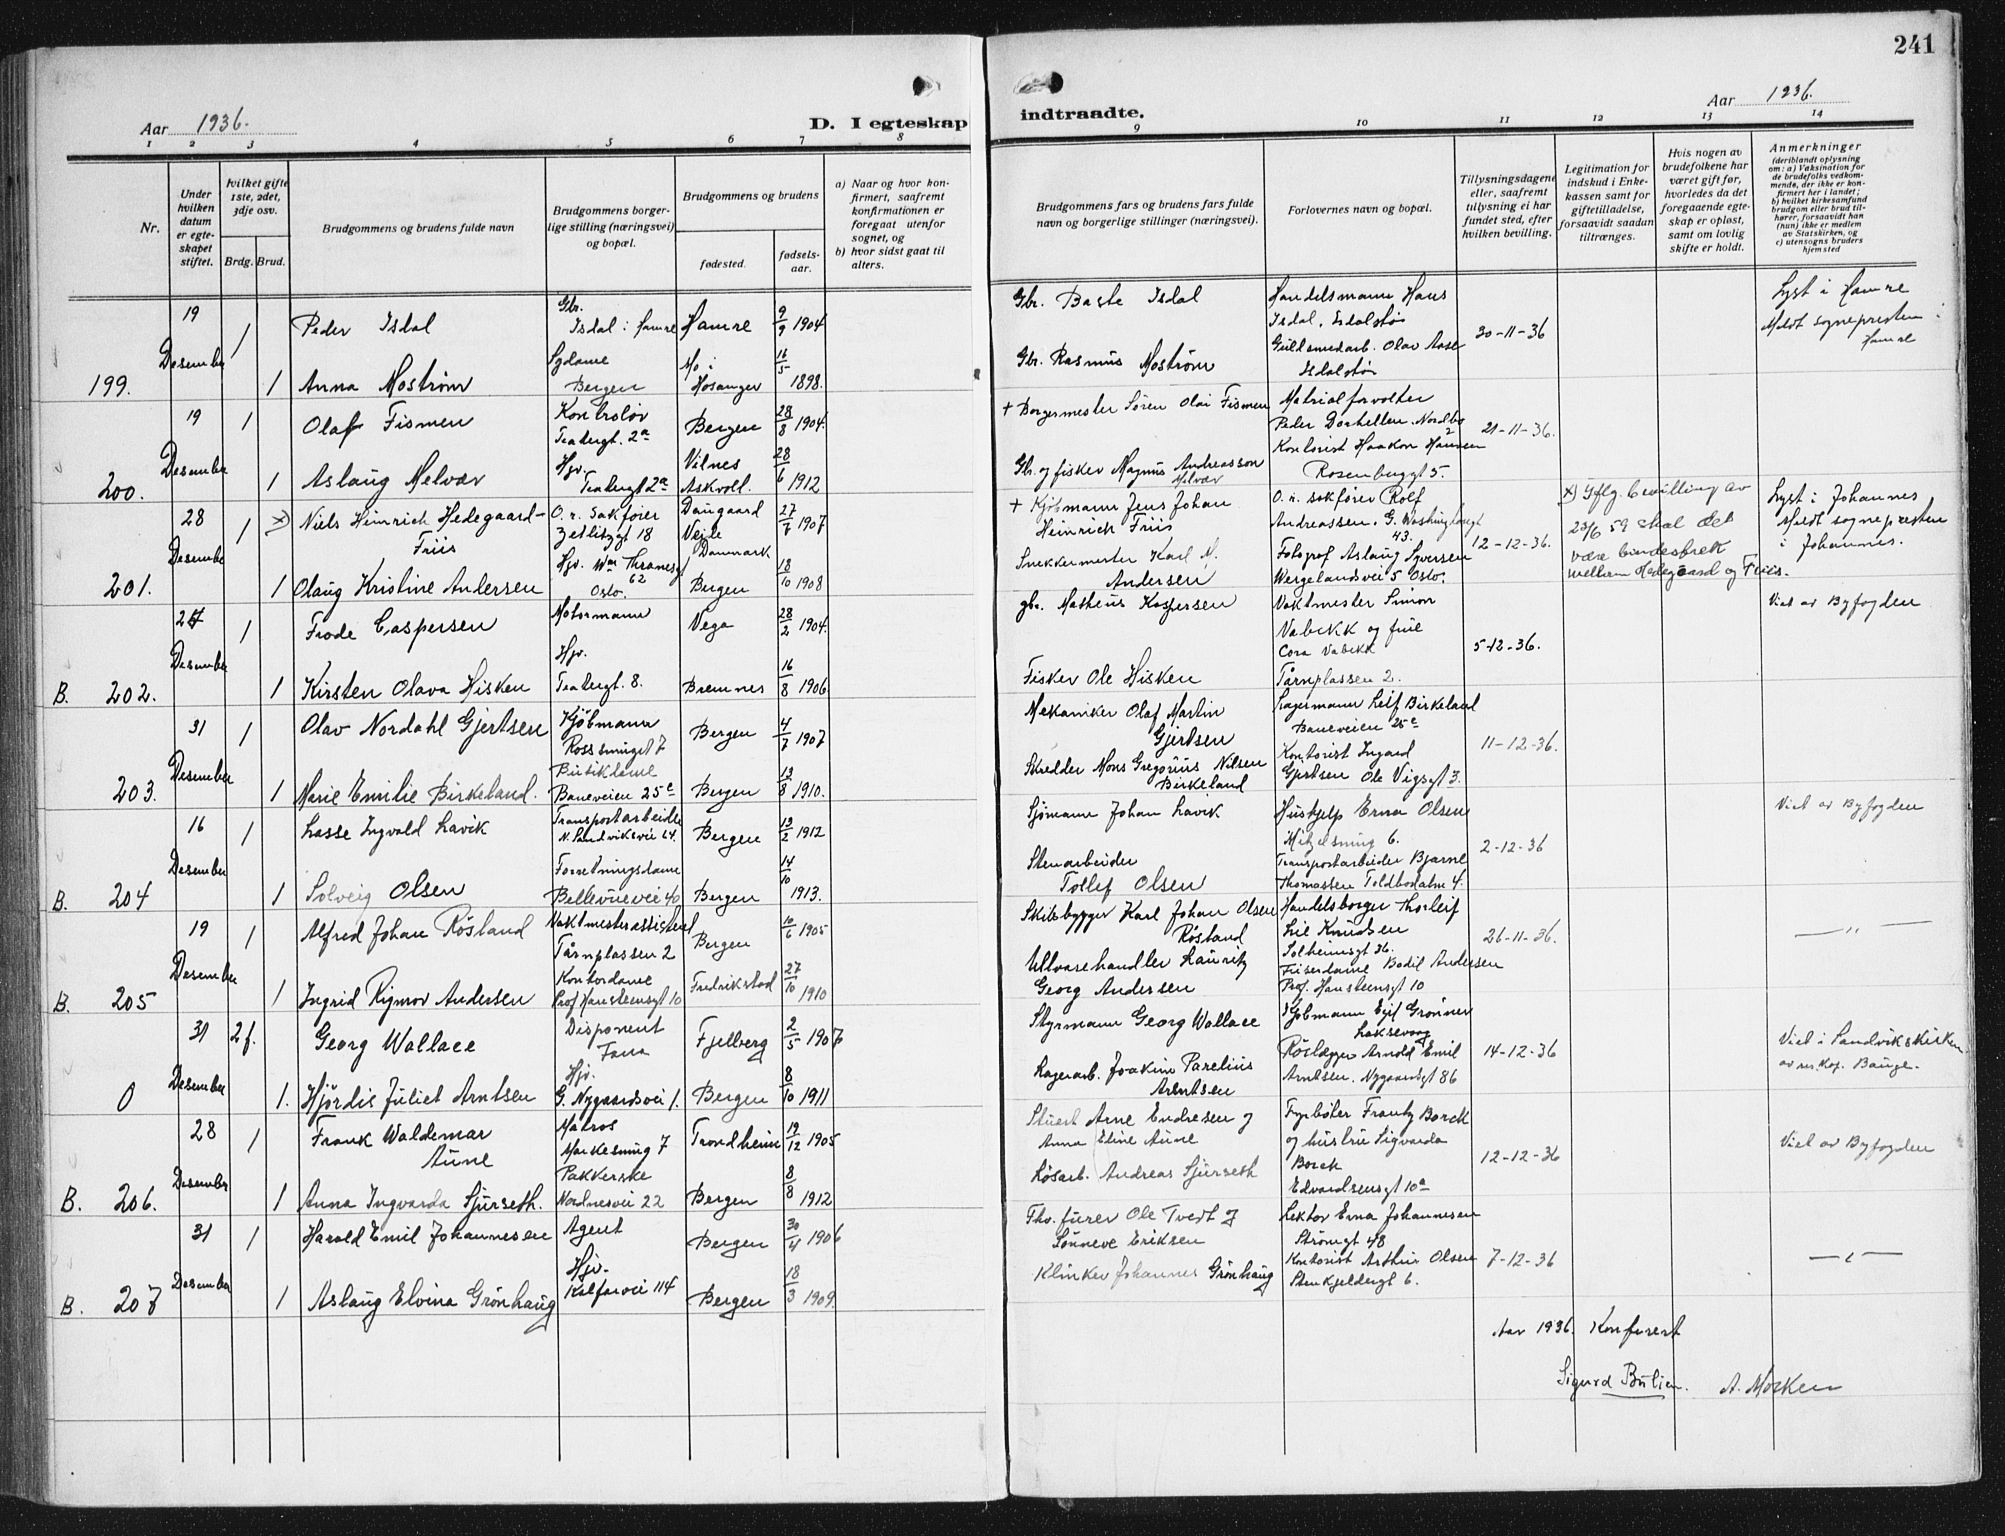 241
Aar 1936.
D. I egteskap
indtraadte.
Aar 1936.
1 2 3 4 5 6 7 8 9 10 11 12 13 14
Nr.
Under hvilken datum er egteskapet stiftet.
hvilket gifte 1ste, 2det, 3dje osv.
Brdg. Brud.
Brudgommens og brudens fulde navn
Brudgommens borgerlige stilling (næringsvei) og bopæl.
Brudgommens og brudens
fødested.
fødselsaar.
a) Naar og hvor konfirmert, saafremt konfirmationen er foregaat utenfor sognet, og
b) hvor sidst gaat til alters.
Brudgommens fars og brudens fars fulde navn og borgerlige stillinger (næringsvei).
Forlovernes navn og bopæl.
Tillysningsdagene eller, saafremt tillysning ei har fundet sted, efter hvilken bevilling.
Legitimation for indskud i Enkekassen samt for giftetilladelse, forsaavidt saadan tiltrænges.
Hvis nogen av brudefolkene har været gift før, hvorledes da det foregaaende egteskap er opløst, samt om lovlig skifte er holdt.
Anmerkninger
(deriblandt oplysning om: a) Vaksination for de brudefolks vedkommende, der ikke er konfirmert her i landet;
b) hvilket kirkesamfund brudgom eller brud tilhører, forsaavidt han (hun) ikke er medlem av Statskirken, og
c) utensogns bruders hjemsted
19 1 Peder Isdal Gbr. Isdal i Hamre Hamre 9/9 1904
Gbr. Baste Isdal Handelsmann Hans Isdal, Isdalstø 30-11-36 Lyst i Hamre
Meldt sognepresten i Hamre
199. Desember 1 Anna Mostrøm Sydame Bergen Mo i Hosanger 16/5 1898.
Gbr. Rasmus Mostrøm Gullsmedarb. Olav Aase Isdalstø
19 1 Olaf Fismen Kontrolør Teatergt. 2a Bergen 28/8 1904.
+ Borgermester Søren Olai Fismen Matrialforvalter Peder Nordbø 2 21-11-36.
200. Desember 1 Aslaug Melvær Hjv. Teatergt 2a Vilnes Askvoll. 28/6 1912
Gbr. og fisker Magnus Andreasson Melvær Kontorist Haakon Hansen Rosenberggt 5.
28 1 x) Niels Heinrich Hedegaard-Friis O. r. Sakfører Zetlitzgt 18 Daugaard Vejle Danmark 27/7 1907
+ Kjøbmann Jens Johan Heinrich Friis O. r. sakfører Rolf Andreassen. G. Washingtonsgt 43. 12-12-36.
x) Iflg. bevilling av 23/6 59 skal det være bindestrek mellem Hedegaard og Friis.
Lyst i Johannes
Meldt sognepresten i Johannes.
201. Desember 1 Olaug Kristine Andersen Hjv. Wm Thranesgt 62 Oslo. Bergen 18/10 1908
Snekkermester Karl M. Andersen Fotograf Aslaug Syversen Wergelandsvei 5 Oslo.
27 1 Frode Caspersen Motormann Vega 28/2 1904.
gbr. Matheus Kaspersen Vaktmester Simon Vabekk og frue Cora Vabekk 5-12-36. Viet av Byfogden
B. 202. Desember 1 Kirsten Olava Hisken Hjv. Teatergt. 8. Bremnes 16/8 1906
Fisker Ole Hisken Tårnplassen 2.
31 1 Olav Nordahl Gjertsen Kjøbmann Rossmuget 7 Bergen 4/7 1907
Mekaniker Olaf Martin Gjertsen Lagermann Leif Birkeland Baneveien 25c 11-12-36.
203. Desember 1 Marie Emilie Birkeland. Butikdame Baneveien 25c Bergen 13/8 1910.
Skredder Mons Gregorius Nilsen Birkeland Kontorist Ingard Gjertsen Ole Vigsgt 3.
16 1 Lasse Ingvald Lavik Transportarbeider N. Sandviksvei 64. Bergen 13/2 1912
Sjømann Johan Lavik Hushjelp Erna Olsen 6. 2-12-36 Viet av Byfogden
B. 204 Desember 1 Solveig Olsen Forretningsdame Bellevuevei 40 Bergen 14/10 1913.
Stenarbeider Tollef Olsen Transportarbeider Bjarne Thomassen Toldbodalm 4.
19 1 Alfred Johan Røsland Vaktmesterassistent Tårnplassen 2 Bergen 10/6 1905
Skibsbygger Karl Johan Olsen Røsland Handelsborger Thorleif Lie Knudsen Solheimsgt 36. 26-11-36. — " —
B. 205 Desember 1 Ingrid Rigmor Andersen Kontordame Prof Hansteensgt 10 Fredrikstad 27/10 1910
Ullvarehandler Lauritz Georg Andersen Friserdame Bodil Andersen Prof. Hansteensgt 10
31 2 f. Georg Wallace Disponent Fana Fjelberg 2/5 1907
Styrmann Georg Wallace Kjøbmann Egil Grønner Laksevaag 14-12-36 Viet i Sandvikskirken
av res. Kap. Bauge.
0 Desember 1. Hjørdis Juliet Arntsen Hjv. G. Nygaardsvei 1. Bergen 8/10 1911
Lagerarb. Joakim Parelius Arntsen Rørlegger Arnold Emil Arntsen. Nygaardsgt 86
28 1 Frank Waldemar Aune Matros Markesmug 7 Trondheim 19/12 1905
Stuert Arne Endresen og Anna Eline Aune Fyrbøter Frantz Borck og hustru Sigvarda Borck 12-12-36 Viet av Byfogden
B. 206. Desember 1 Anna Ingvarda Sjurseth. Pakkerske Nordnesvei 22 Bergen 8/8 1912
Løsarb. Andreas Sjurseth Edvardsensgt 10a
31 1 Harald Emil Johannesen Agent Bergen 30/4 1906
Tho. furer Ole Tvedt og Sønneve Eriksen Lektor Erna Johannesen Strømgt 48 7-12-36 — " —
B. 207 Desember 1 Aslaug Elvina Grønhaug Hjv. Kalfarvei 114 Bergen 18/3 1909.
Klinker Johannes Grønhaug Kontorist Arthur Olsen Stenkjeldergt 6.
Aar 1936. Konferert
Sigurd A. Morken